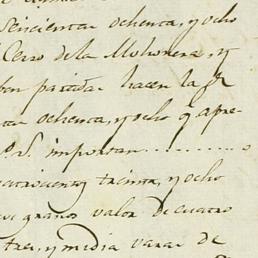 Seiscientas ochenta, y ocho
Cerro de la Molonera, y
partidas hacen la
ochenta, y ocho q.e apre-
importan..........
quatrocientos treinta, y ocho
granos valor de cuatro
tres, y media varas de